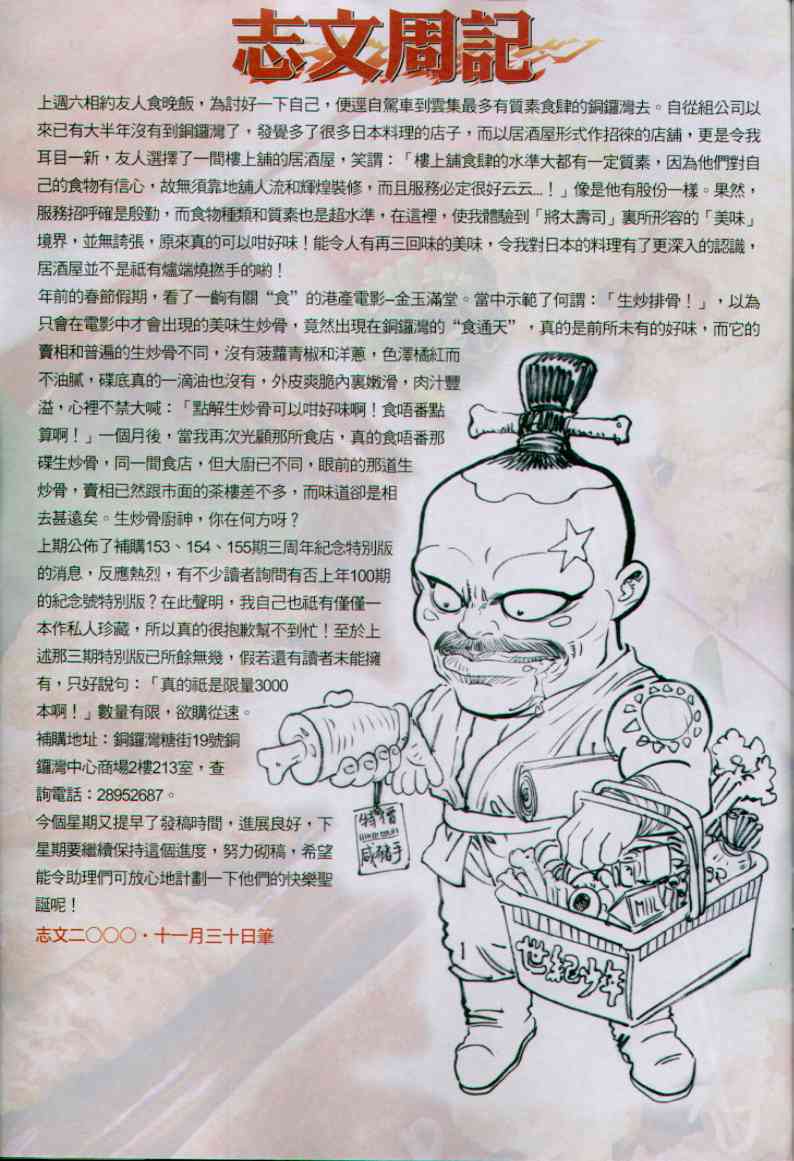 志文周記
上週六相約友人食晚飯，為討好一下自己，便逕自駕車到雲集最多有質素食肆的銅鑼灣去。自從組公司以
來已有大半年沒有到銅鑼灣了，發覺多了很多日本料理的店子，而以居酒屋形式作招徠的店舖，更是令我
耳目一新，友人選擇了一間樓上舖的居酒屋，笑謂：「樓上舖食肆的水準大都有一定質素，因為他們對自
己的食物有信心，故無須靠地舖人流和輝煌裝修，而且服務必定很好云云...！」像是他有股份一樣。果然，
服務招呼確是殷勤，而食物種類和質素也是超水準，在這裡，使我體驗到「將太壽司」裏所形容的「美味」
境界，並無誇張，原來真的可以咁好味！能令人有再三回味的美味，令我對日本的料理有了更深入的認識，
居酒屋並不是祗有爐端燒撚手的喲！
年前的春節假期，看了一齣有關“食”的港產電影–金玉滿堂。當中示範了何謂：「生炒排骨！」，以為
只會在電影中才會出現的美味生炒骨，竟然出現在銅鑼灣的“食通天”，真的是前所未有的好味，而它的
賣相和普遍的生炒骨不同，沒有菠蘿青椒和洋蔥，色澤橘紅而
不油膩，碟底真的一滴油也沒有，外皮爽脆內裏嫩滑，肉汁豐
溢，心裡不禁大喊：「點解生炒骨可以咁好味啊！食唔番點
算啊！」一個月後，當我再次光顧那所食店，真的食唔番那
碟生炒骨，同一間食店，但大廚已不同，眼前的那道生
炒骨，賣相已然跟市面的茶樓差不多，而味道卻是相
去甚遠矣。生炒骨廚神，你在何方呀？
上期公佈了補購153、154、155期三周年紀念特別版
的消息，反應熱烈，有不少讀者詢問有否上年100期
的紀念號特別版？在此聲明，我自己也祗有僅僅一
本作私人珍藏，所以真的很抱歉幫不到忙！至於上
述那三期特別版已所餘無幾，假若還有讀者未能擁
有，只好說句：「真的祗是限量3000
本啊！」數量有限，欲購從速。
補購地址：銅鑼灣糖街19號銅
鑼灣中心商場2樓213室，查
詢電話：28952687。
今個星期又提早了發稿時間，進展良好，下
星期要繼續保持這個進度，努力砌稿，希望
能令助理們可放心地計劃一下他們的快樂聖
誕呢！
志文二〇〇〇·十一月三十日筆
特價
咸豬手
MILK
世紀少年